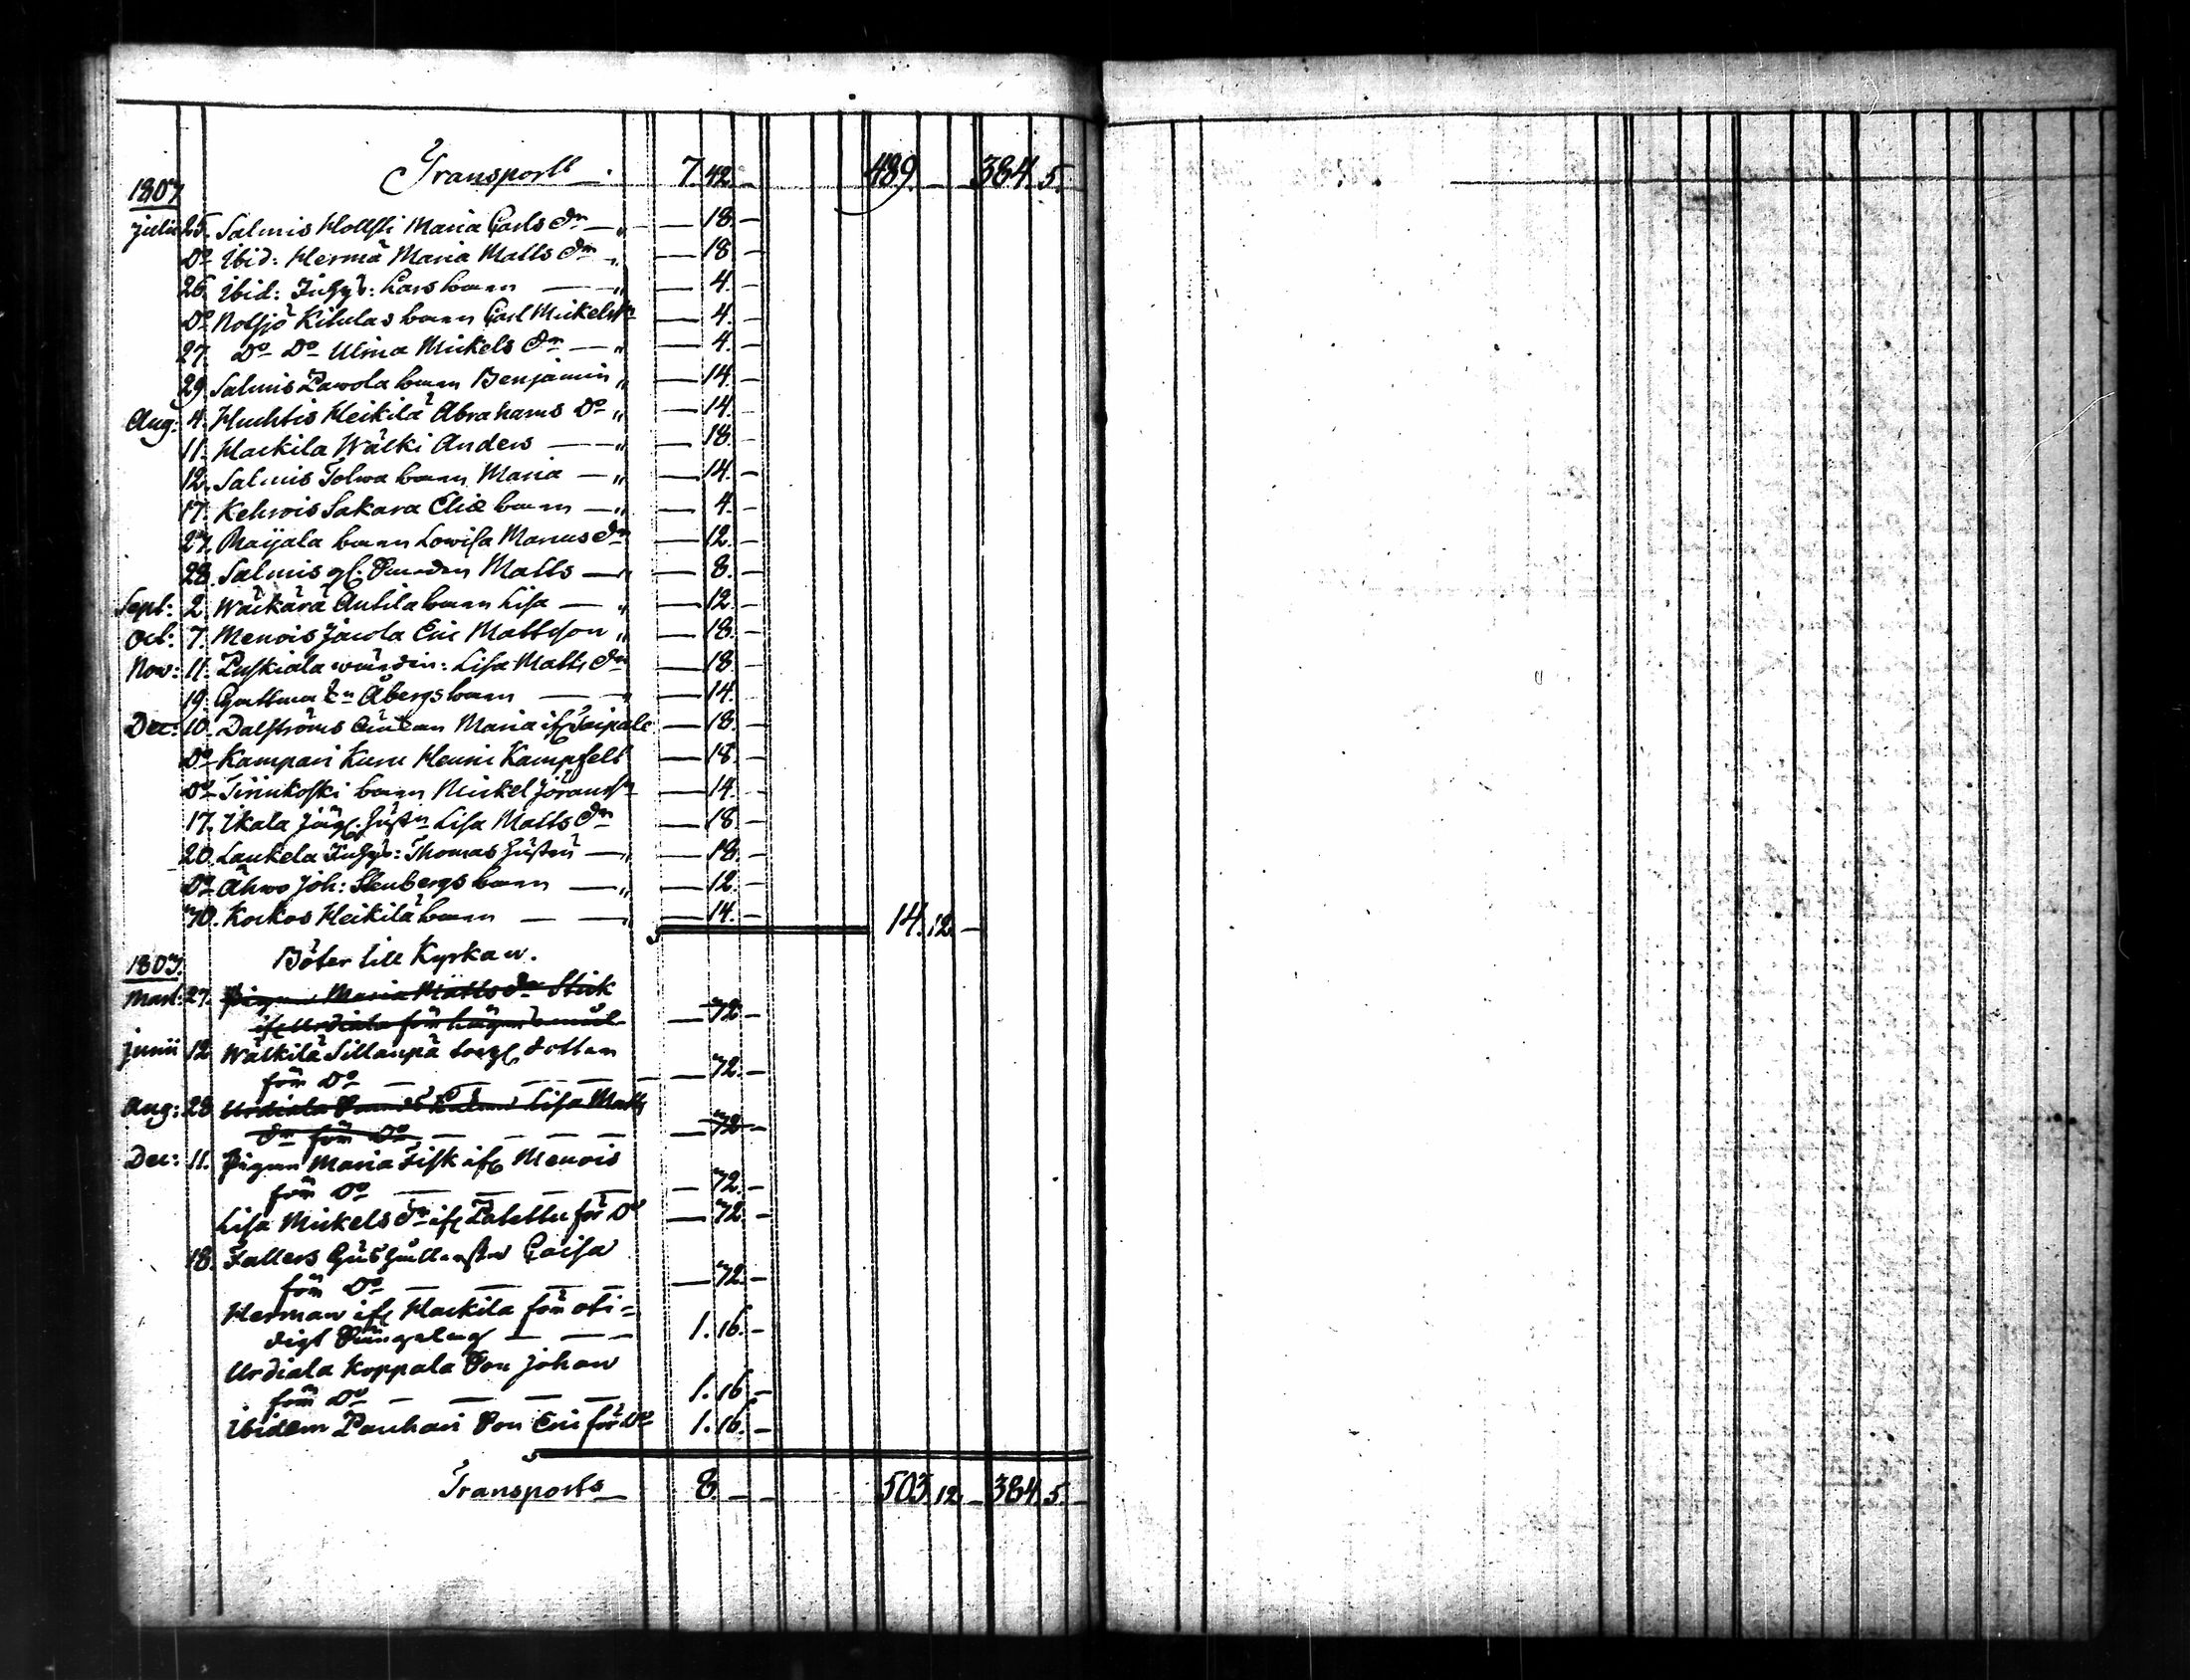 Transport 7. 42. - 489. - - 384. 5.
1807
julii 25. Salmis Hollsti Maria Carls dr - " - 18. -
Do Ibid: Hermä Maria Matts dr " - 18 -
26. Ibid: Inhys: Lars barn - " - 4. -
Do Notsjö Kilulas barn Carl Mickelss - 4. -
27. Do Do Ulrica Mickels dr - " - 4. -
29. Salmis Pawola barn Benjamin " - 14. -
Aug: 4. Huchtis Heikilä Abrahams Do " - 14. -
11. Harkila Wälki Anders - " - 18. -
12. Salmis Tolwa barn Maria - " - 14. -
17. Kehrois Sakara Eliæ barn - " - 4. -
27. Maijala barn Lowisa Manus dr - 12. -
28. Salmis gl. Matts - " - 8. -
Sept: 2. Wäikärä Anttila barn Lisa - " - 12 -
Oct: 7. Menois Jawola Eric Mattsson " - 18. -
Nov: 11. Puskiala Lisa Matts dr - 18 -
19. Åbergs barn - " - 14. -
Dec: 10. Dalströms Enkan Maria ifr Taipale - 18. -
Do Kampari Henric Kampfelt - 18. -
Do Tiriukoski barn Mickel Jöransst - 14. -
17. Ikala Lisa Matts dr - 18 -
20. Laukela Inhys: Thomas hustru - " - 18. -
Do Ähwo Joh: Stenbergs barn - " - 12. -
30. Korkos Heikilä barn - - " - 14. - 14. 12. -
Böter till Kyrkan.
1807.
Mart: 27. Pigan Maria Matts dr Stick
ifr Urdiala för - 72 -
junii 12 Wälkilä Sillanpä dottern
för Do - - - - - 72. -
Aug: 28 Urdiala Lisa Matts
dr för Do - - - - - 72 -
Dec: 11. Pigan Maria Fisk ifr Menois
för Do - - - - - 72. -
Lisa Mickels dr ifr för Do - 72. -
18. Fallers Caisa
för Do - - - - - 72. -
Herman ifr Harkila för oti=
digt Sängalag - - - 1. 16. -
Urdiala Koppala Son Johan
för Do - - - - 1. 16. -
Ibidem Pauhari Son Eric för Do 1. 16. -
Transport - 8. - - 503. 12. - 384. 5. -